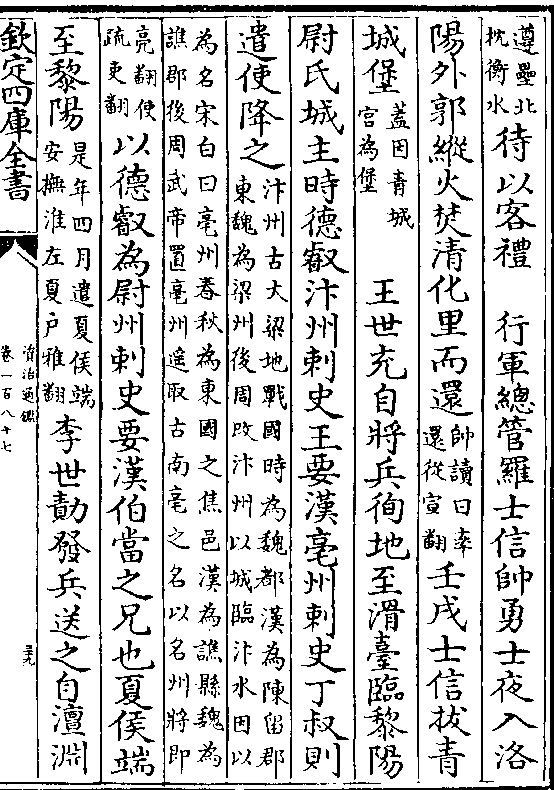 遵壘北枕衡水待以客禮　行軍總管羅士信帥勇士夜入洛
陽外郭縱火焚清化里而還帥讀曰率還從宣翻壬戌士信拔青
城堡蓋因青城宫為堡　王世充自將兵徇地至滑臺臨黎陽
尉氏城主時德叡汴州刺史王要漢亳州刺史丁叔則
遣使降之汴州古大梁地戰國時為魏都漢為陳留郡東魏為梁州後周改汴州以城臨汴水因以
為名宋白曰亳州春秋為東國之焦邑漢為譙縣魏為譙郡後周武帝置亳州遥取古南亳之名以名州將即
亮翻使疏吏翻以德叡為尉州刺史要漢伯當之兄也夏侯端
至黎陽是年四月遣夏侯端安撫淮左夏户雅翻李世勣發兵送之自澶淵
欽定四庫全書
資治通鑑
卷一百八十七